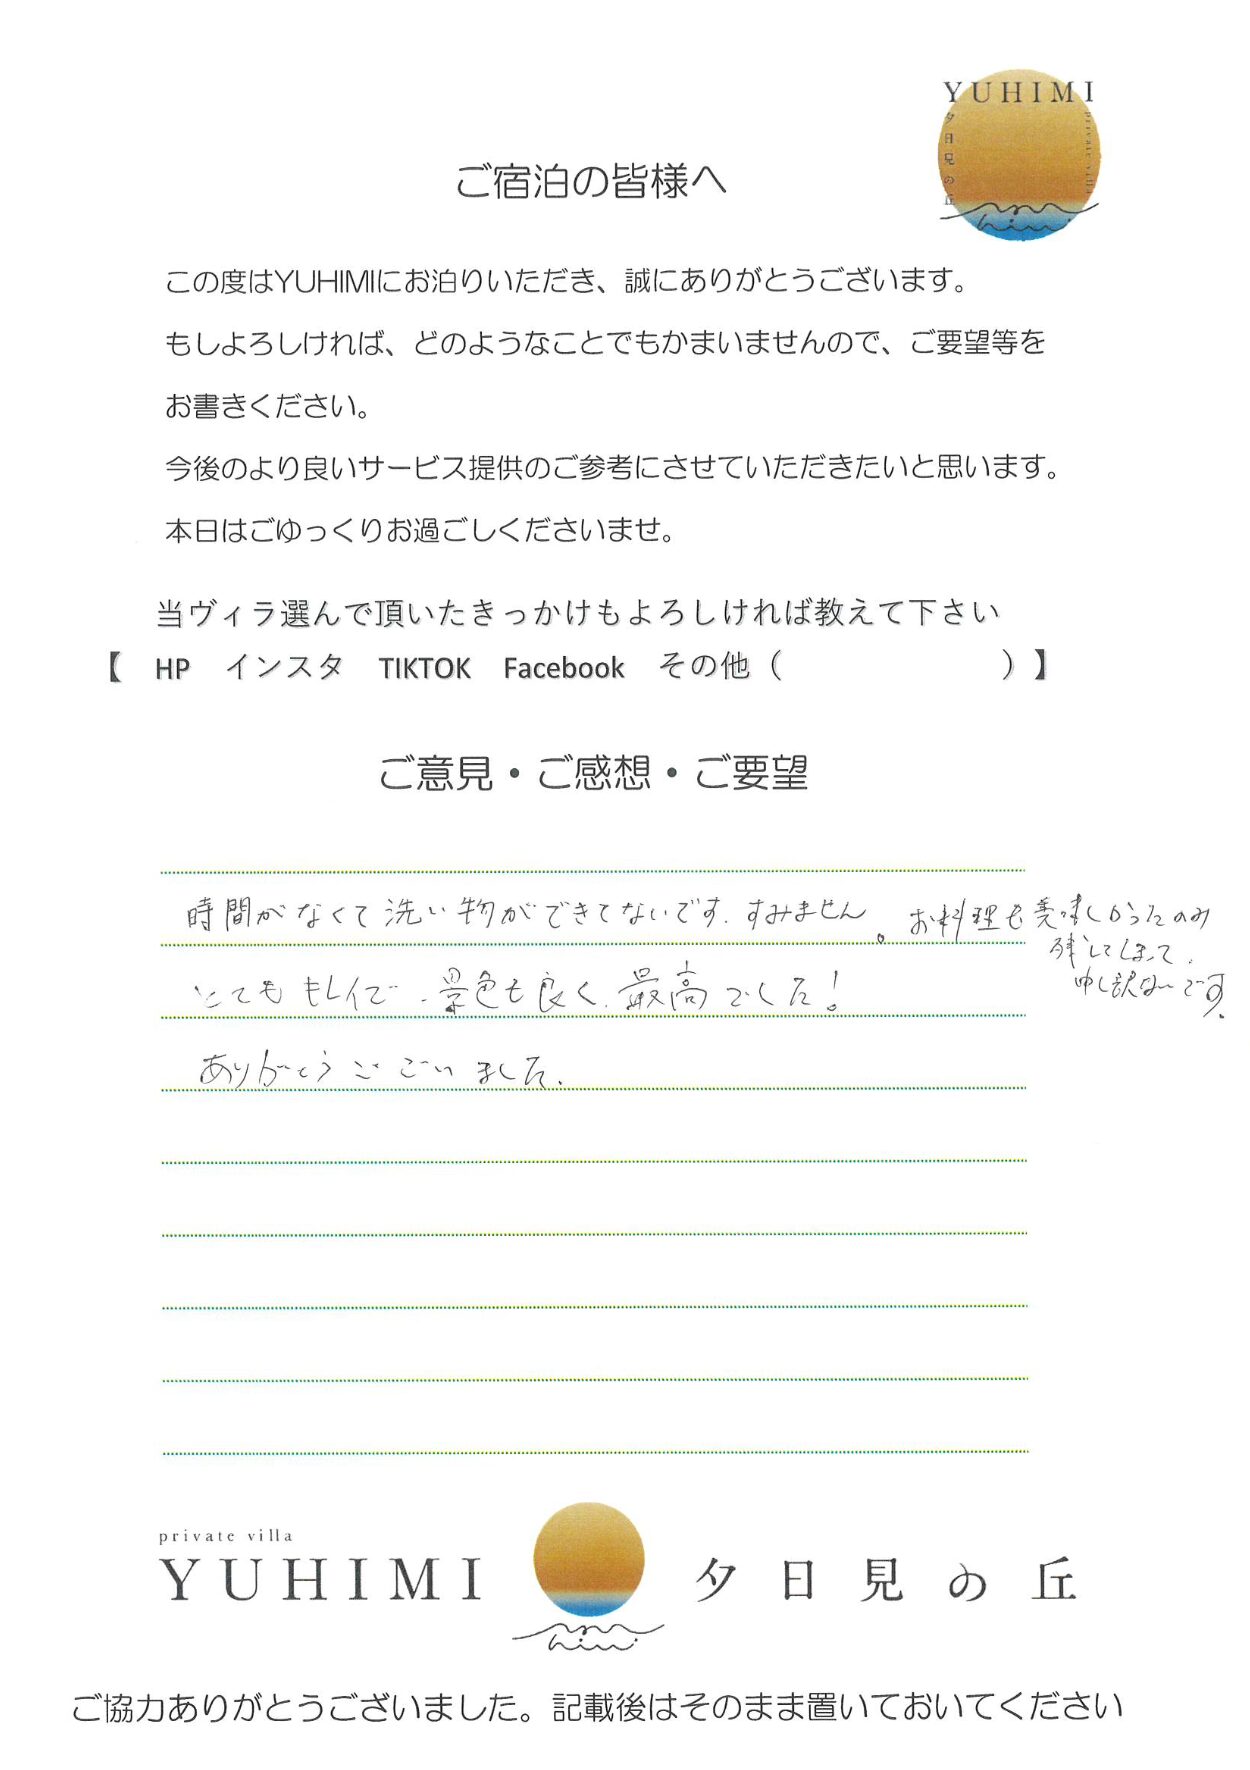 YUHIMI
夕日見の丘
private villa
ご宿泊の皆様へ
この度はYUHIMIにお泊りいただき、誠にありがとうございます。
もしよろしければ、どのようなことでもかまいませんので、ご要望等を
お書きください。
今後のより良いサービス提供のご参考にさせていただきたいと思います。
本日はごゆっくりお過ごしくださいませ。
当ヴィラ選んで頂いたきっかけもよろしければ教えて下さい
【 HP インスタ TIKTOK Facebook その他（ ）】
ご意見・ご感想・ご要望
時間がなくて洗い物ができてないです. すみません。お料理も美味しかったのみ
残してしまって.
申し訳ないです.
とてもキレイで、景色も良く、最高でした!
ありがとうございました.
private villa
YUHIMI 夕日見の丘
ご協力ありがとうございました。記載後はそのまま置いておいてください